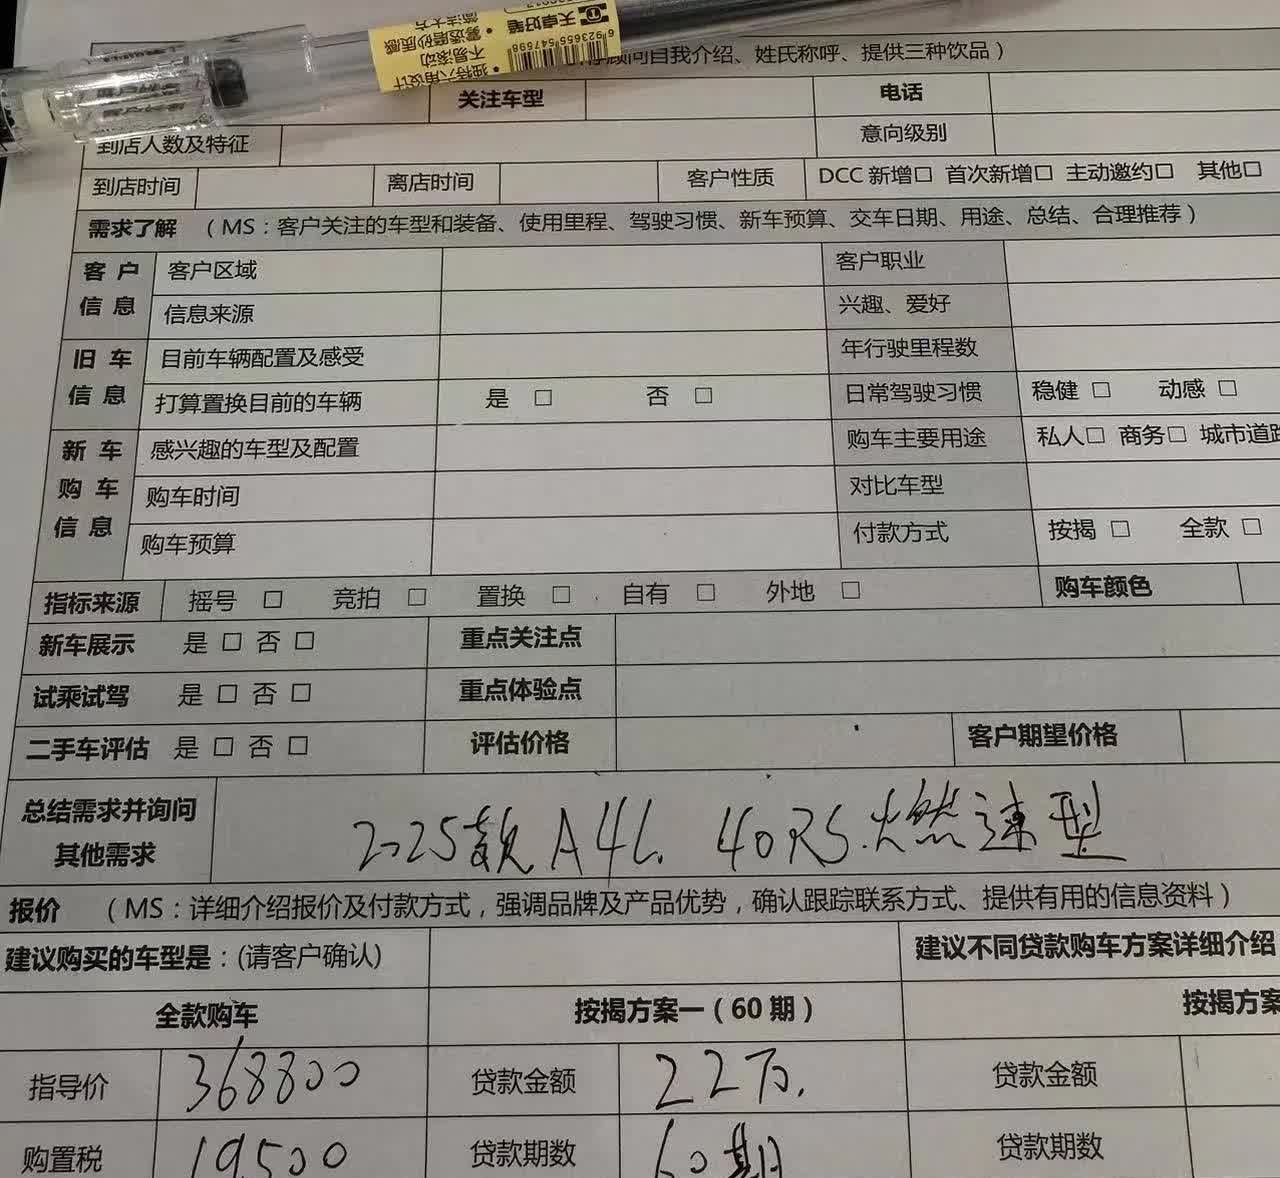 天卓好笔
6 923655 547598
独特六角设计
不易滚动
雾透磨砂质感
简洁大方
顾问自我介绍、姓氏称呼、提供三种饮品）
关注车型 电话
到店人数及特征 意向级别
到店时间 离店时间 客户性质 DCC 新增□ 首次新增□ 主动邀约□ 其他□
需求了解 （MS：客户关注的车型和装备、使用里程、驾驶习惯、新车预算、交车日期、用途、总结、合理推荐）
客户信息 客户区域 客户职业
信息来源 兴趣、爱好
旧车信息 目前车辆配置及感受 年行驶里程数
打算置换目前的车辆 是 □ 否 □ 日常驾驶习惯 稳健 □ 动感 □
新车购车信息 感兴趣的车型及配置 购车主要用途 私人□ 商务□ 城市道路
购车时间 对比车型
购车预算 付款方式 按揭 □ 全款 □
指标来源 摇号 □ 竞拍 □ 置换 □ 自有 □ 外地 □ 购车颜色
新车展示 是 □ 否 □ 重点关注点
试乘试驾 是 □ 否 □ 重点体验点
二手车评估 是 □ 否 □ 评估价格 客户期望价格
总结需求并询问其他需求 2025款 A4L 40RS.燃速型
报价 （MS：详细介绍报价及付款方式，强调品牌及产品优势，确认跟踪联系方式、提供有用的信息资料）
建议购买的车型是：(请客户确认) 建议不同贷款购车方案详细介绍
全款购车 按揭方案一（60 期） 按揭方案
指导价 368800 贷款金额 22万. 贷款金额
购置税 19500 贷款期数 60期 贷款期数